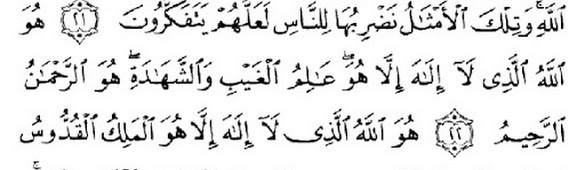 ٱللَّهِۚ وَتِلۡكَ ٱلۡأَمۡثَٰلُ نَضۡرِبُهَا لِلنَّاسِ لَعَلَّهُمۡ يَتَفَكَّرُونَ ٢١ هُوَ
ٱللَّهُ ٱلَّذِي لَآ إِلَٰهَ إِلَّا هُوَۖ عَٰلِمُ ٱلۡغَيۡبِ وَٱلشَّهَٰدَةِۖ هُوَ ٱلرَّحۡمَٰنُ
ٱلرَّحِيمُ ٢٢ هُوَ ٱللَّهُ ٱلَّذِي لَآ إِلَٰهَ إِلَّا هُوَ ٱلۡمَلِكُ ٱلۡقُدُّوسُ